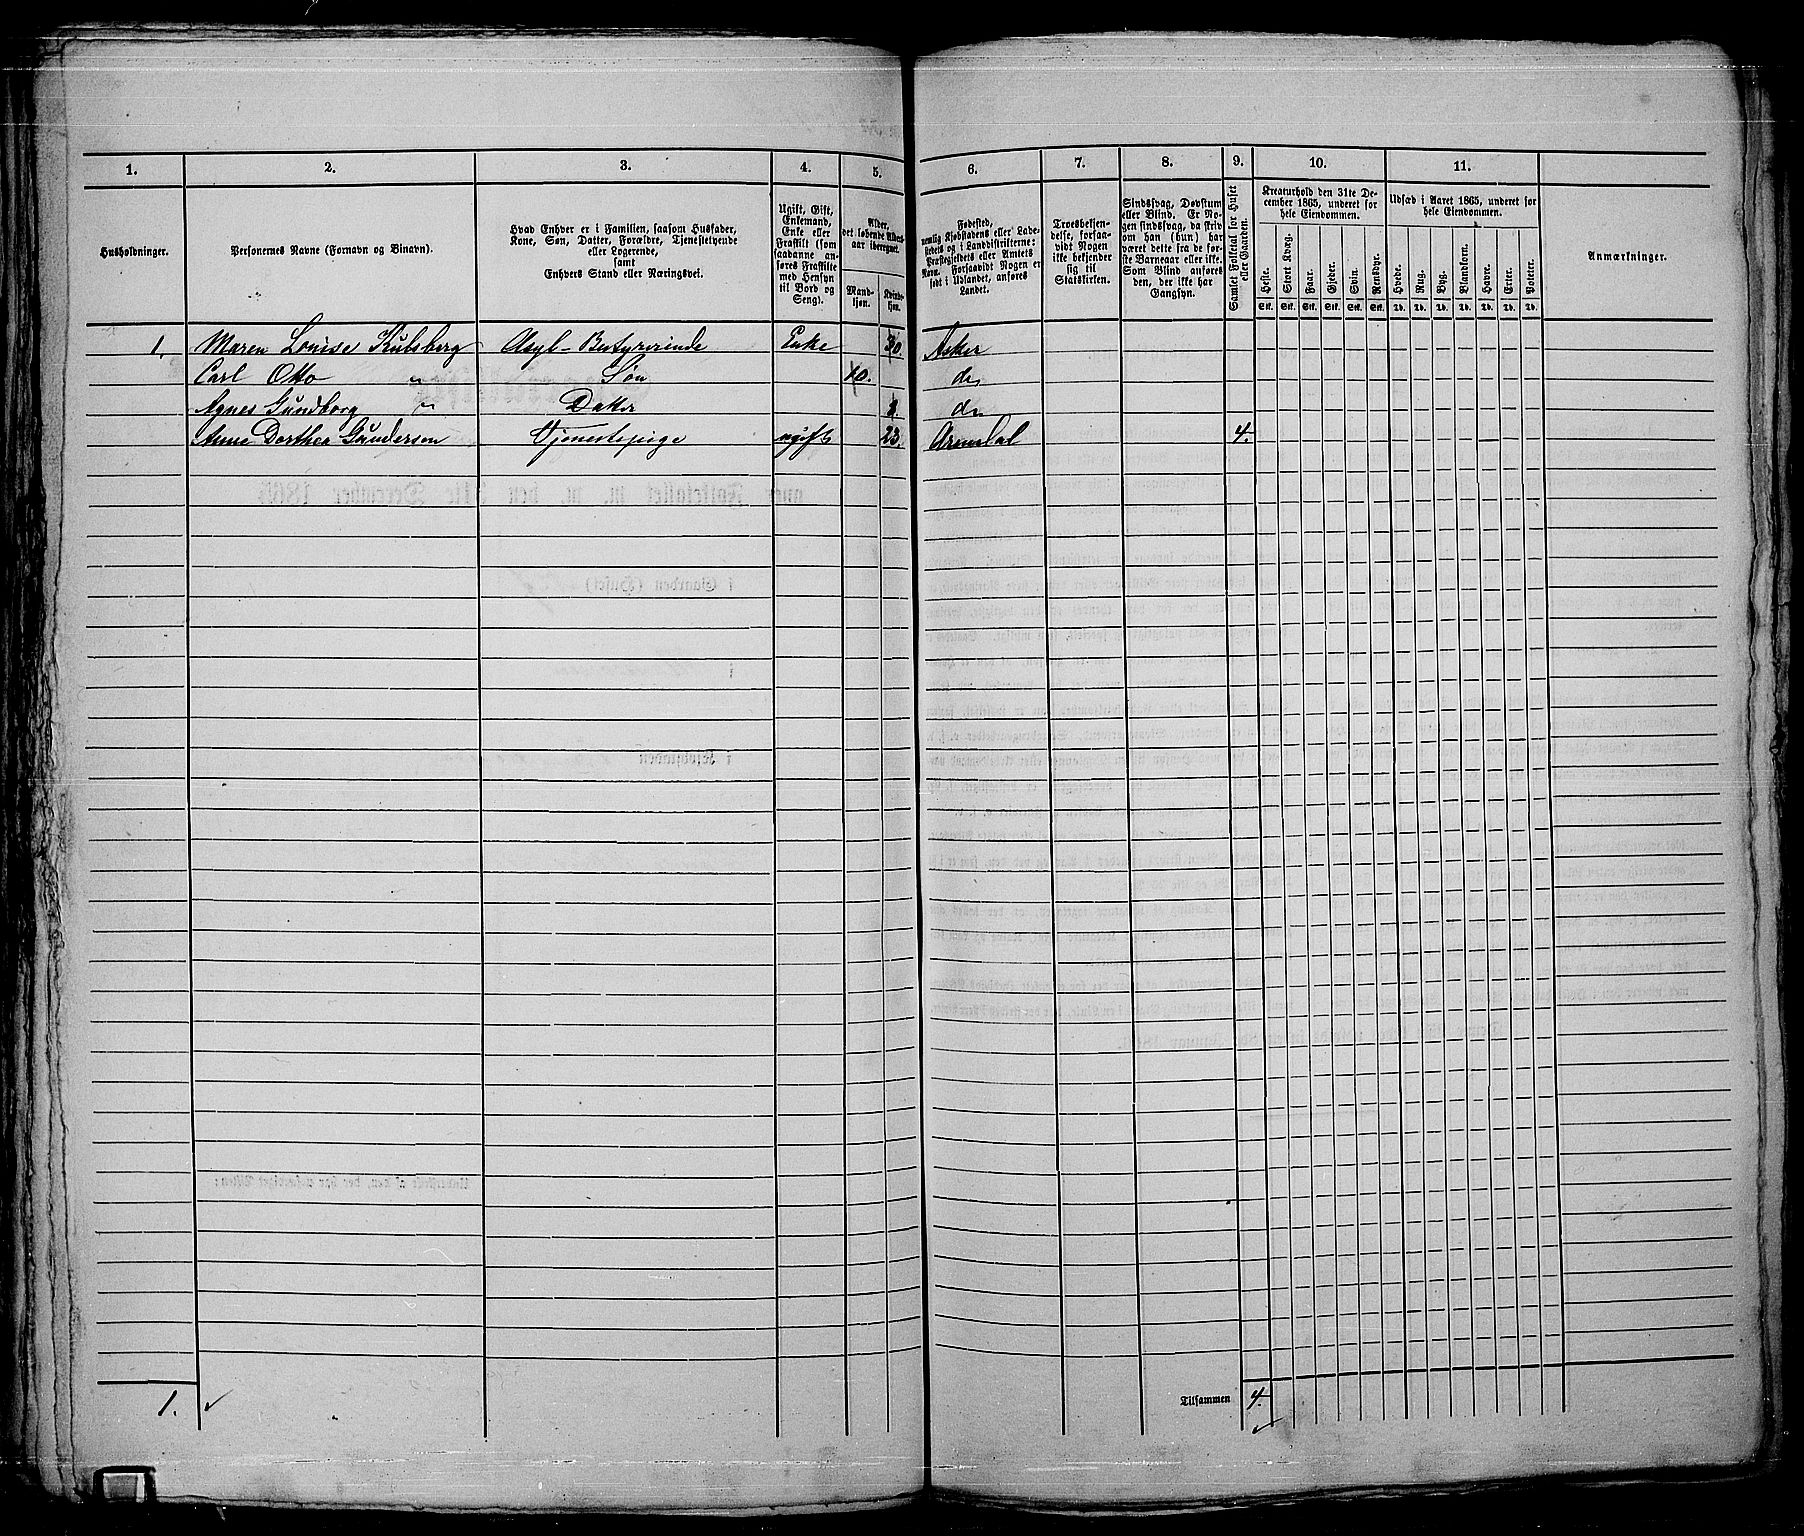 1. 2. 3. 4. 5. 6. 7. 8. 9. 10. 11.
Husholdninger.
Personernes Navne (Fornavn og Binavn).
Hvad Enhver er i Familien, saasom Husfader,
Kone, Søn, Datter, Forældre, Tjenestetyende
eller Logerende,
samt
Enhvers Stand eller Næringsvei.
Ugift, Gift,
Enkemand,
Enke eller
Fraskilt (som
saadanne an-
føres Fraskilte
med Hensyn
til Bord og
Seng).
Alder,
det løbende Alders-
aar iberegnet.
Mand-
kjøn.
Kvinde-
kjøn.
Fødested,
nemlig Kjøbstadens eller Lade-
stedets og i Landdistrikterne:
Præstegjeldets eller Amtets
Navn. Forsaavidt Nogen er
født i Udlandet, anføres
Landet.
Troesbekjen-
delse, forsaa-
vidt Nogen
ikke bekjender
sig til
Statskirken.
Sindssvag, Døvstum
eller Blind. Er No-
gen sindssvag, da skriv
om han (hun) har
været dette fra de før-
ste Barneaar eller ikke.
Som Blind anføres
den, der ikke har
Gangsyn.
Samlet Folketal for Huset
eller Gaarden.
Kreaturhold den 31te De-
cember 1865, underet for
hele Eiendommen.
Heste. Stort Kvæg. Faar. Gjeder. Svin. Rensdyr.
Stk. Stk. Stk. Stk. Stk. Stk.
Udsæd i Aaret 1865, underet for
hele Eiendommen.
Hvede. Rug. Byg. Blandkorn. Havre. Erter. Poteter.
Td. Td. Td. Td. Td. Td. Td.
Anmærkninger.
1. Maren Lovise Kulsberg Asyl-Bestyrerinde Enke Asker
Carl Otto " Søn 10. do
Agnes Gundborg " Datter do
Anne Dorthea Gundersen Tjenestepige ugift 23. Arendal 4.
1. Tilsammen 4.